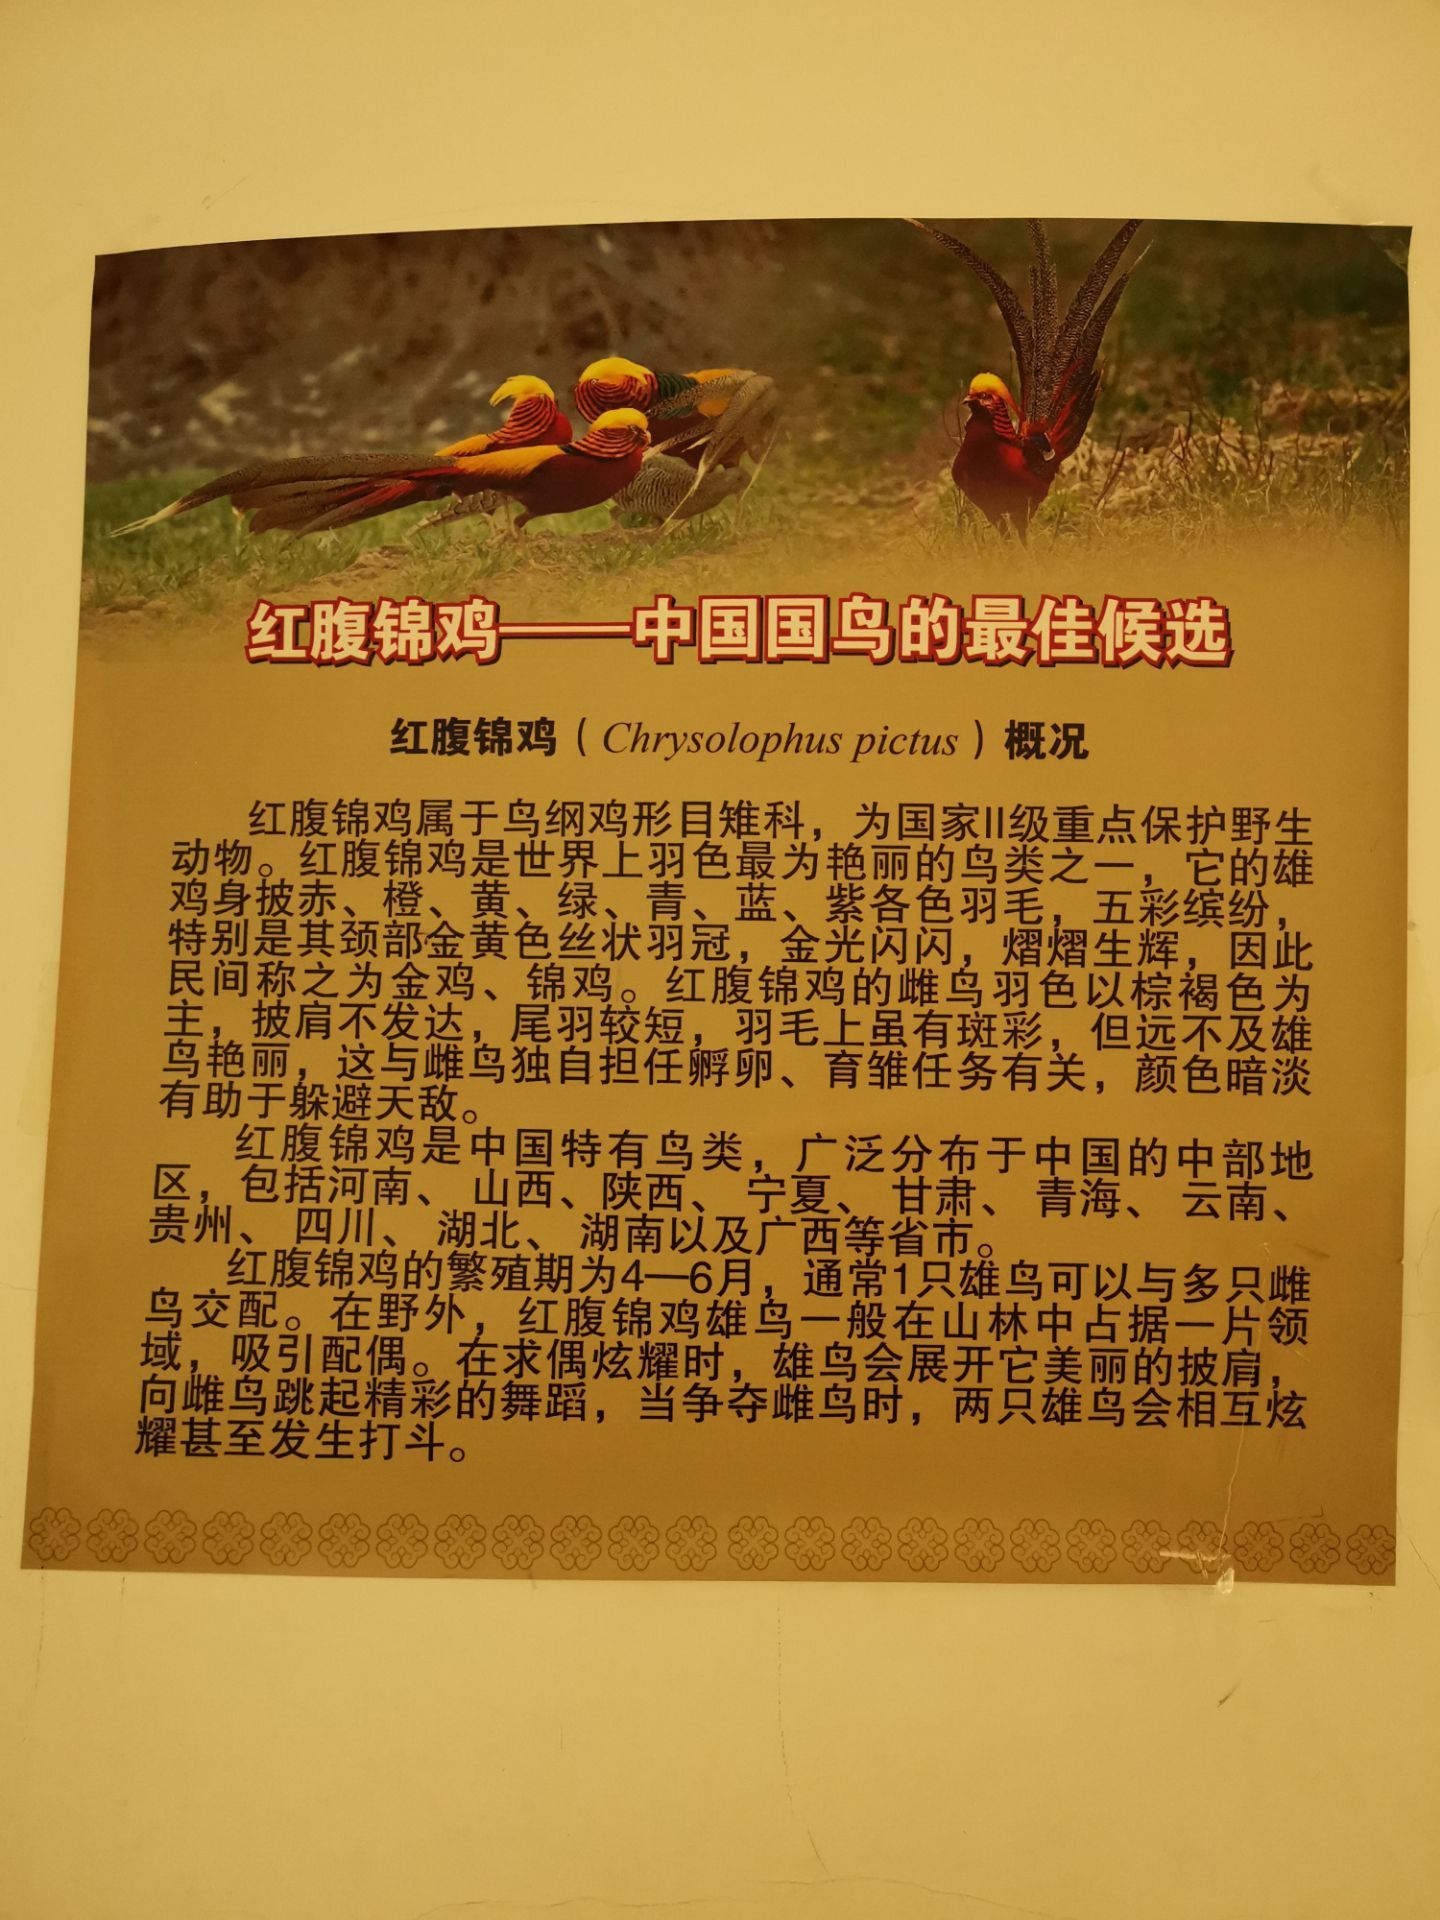 红腹锦鸡——中国国鸟的最佳候选
红腹锦鸡（Chrysolophus pictus）概况
红腹锦鸡属于鸟纲鸡形目雉科，为国家II级重点保护野生
动物。红腹锦鸡是世界上羽色最为艳丽的鸟类之一，它的雄
鸡身披赤、橙、黄、绿、青、蓝、紫各色羽毛，五彩缤纷，
特别是其颈部金黄色丝状羽冠，金光闪闪，熠熠生辉，因此
民间称之为金鸡、锦鸡。红腹锦鸡的雌鸟羽色以棕褐色为
主，披肩不发达，尾羽较短，羽毛上虽有斑彩，但远不及雄
鸟艳丽，这与雌鸟独自担任孵卵、育雏任务有关，颜色暗淡
有助于躲避天敌。
红腹锦鸡是中国特有鸟类，广泛分布于中国的中部地
区，包括河南、山西、陕西、宁夏、甘肃、青海、云南、
贵州、四川、湖北、湖南以及广西等省市。
红腹锦鸡的繁殖期为4—6月，通常1只雄鸟可以与多只雌
鸟交配。在野外，红腹锦鸡雄鸟一般在山林中占据一片领
域，吸引配偶。在求偶炫耀时，雄鸟会展开它美丽的披肩，
向雌鸟跳起精彩的舞蹈，当争夺雌鸟时，两只雄鸟会相互炫
耀甚至发生打斗。